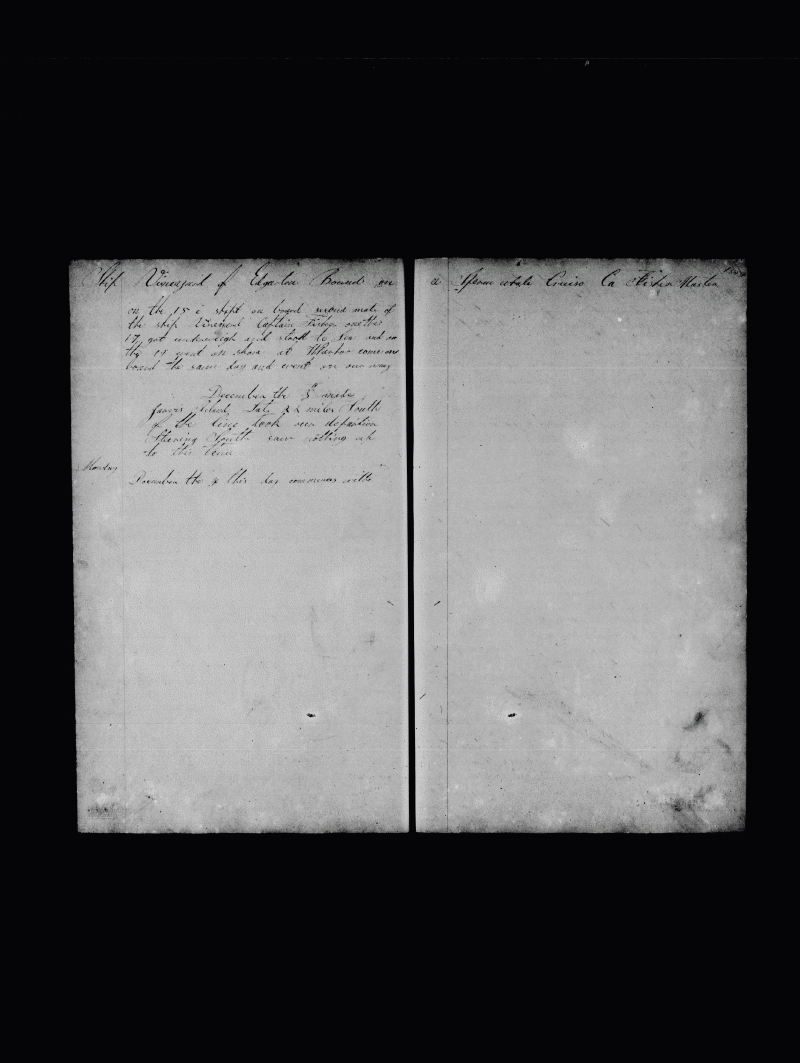 Ship Vineyard of Edgarton Bound on
a Sperm whale Cruise Ca Fisher Master
on the 15 i shipt on board second mate of
the ship Vineyard Captain Fisher on the
17 got underweigh and stood to sea and on
the 19 went on shore at come on
board the same day and went on our way
December the 3 made
Island Lat 22 miles South
of the line took our departure
Stearing South saw nothing up
to this time
Monday
December the 4 this day commences with